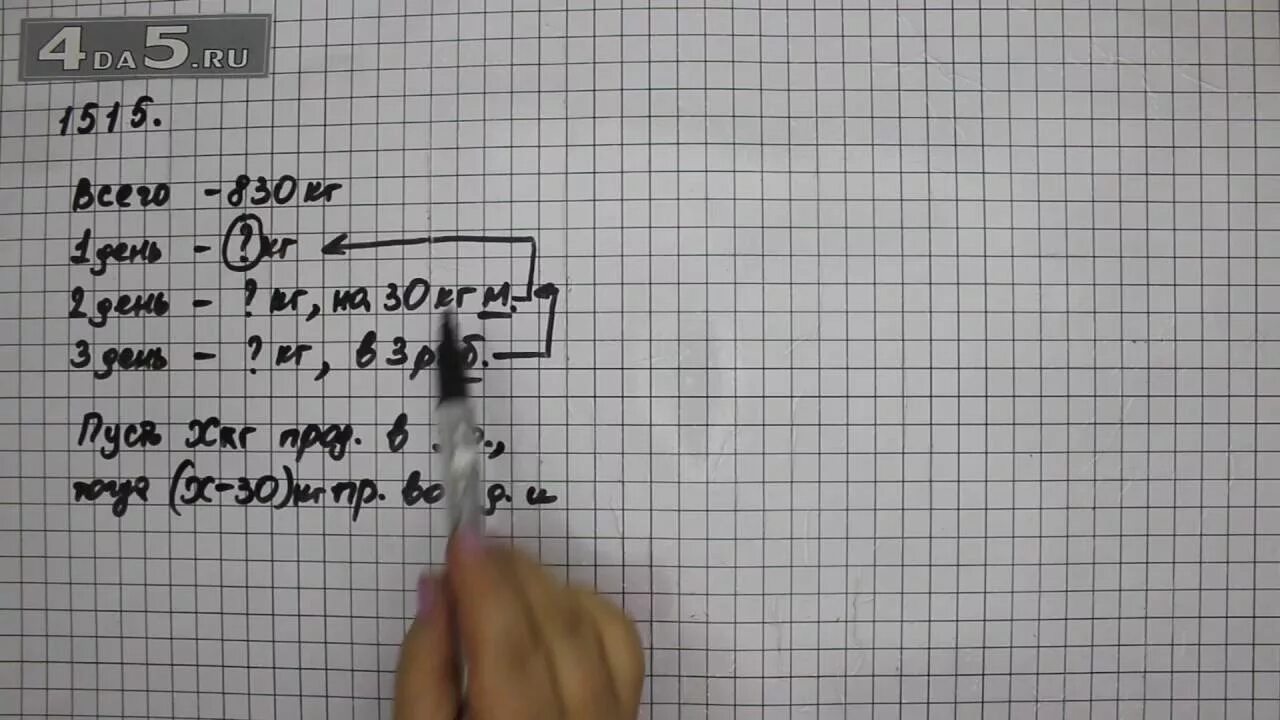 4DA5.RU
1515.
Всего - 830 кг
1 день - ? кг
2 день - ? кг, на 30 кг м.
3 день - ? кг, в 3 б.
Пусть x кг прод. в
тогда (x-30) кг пр. во д. и